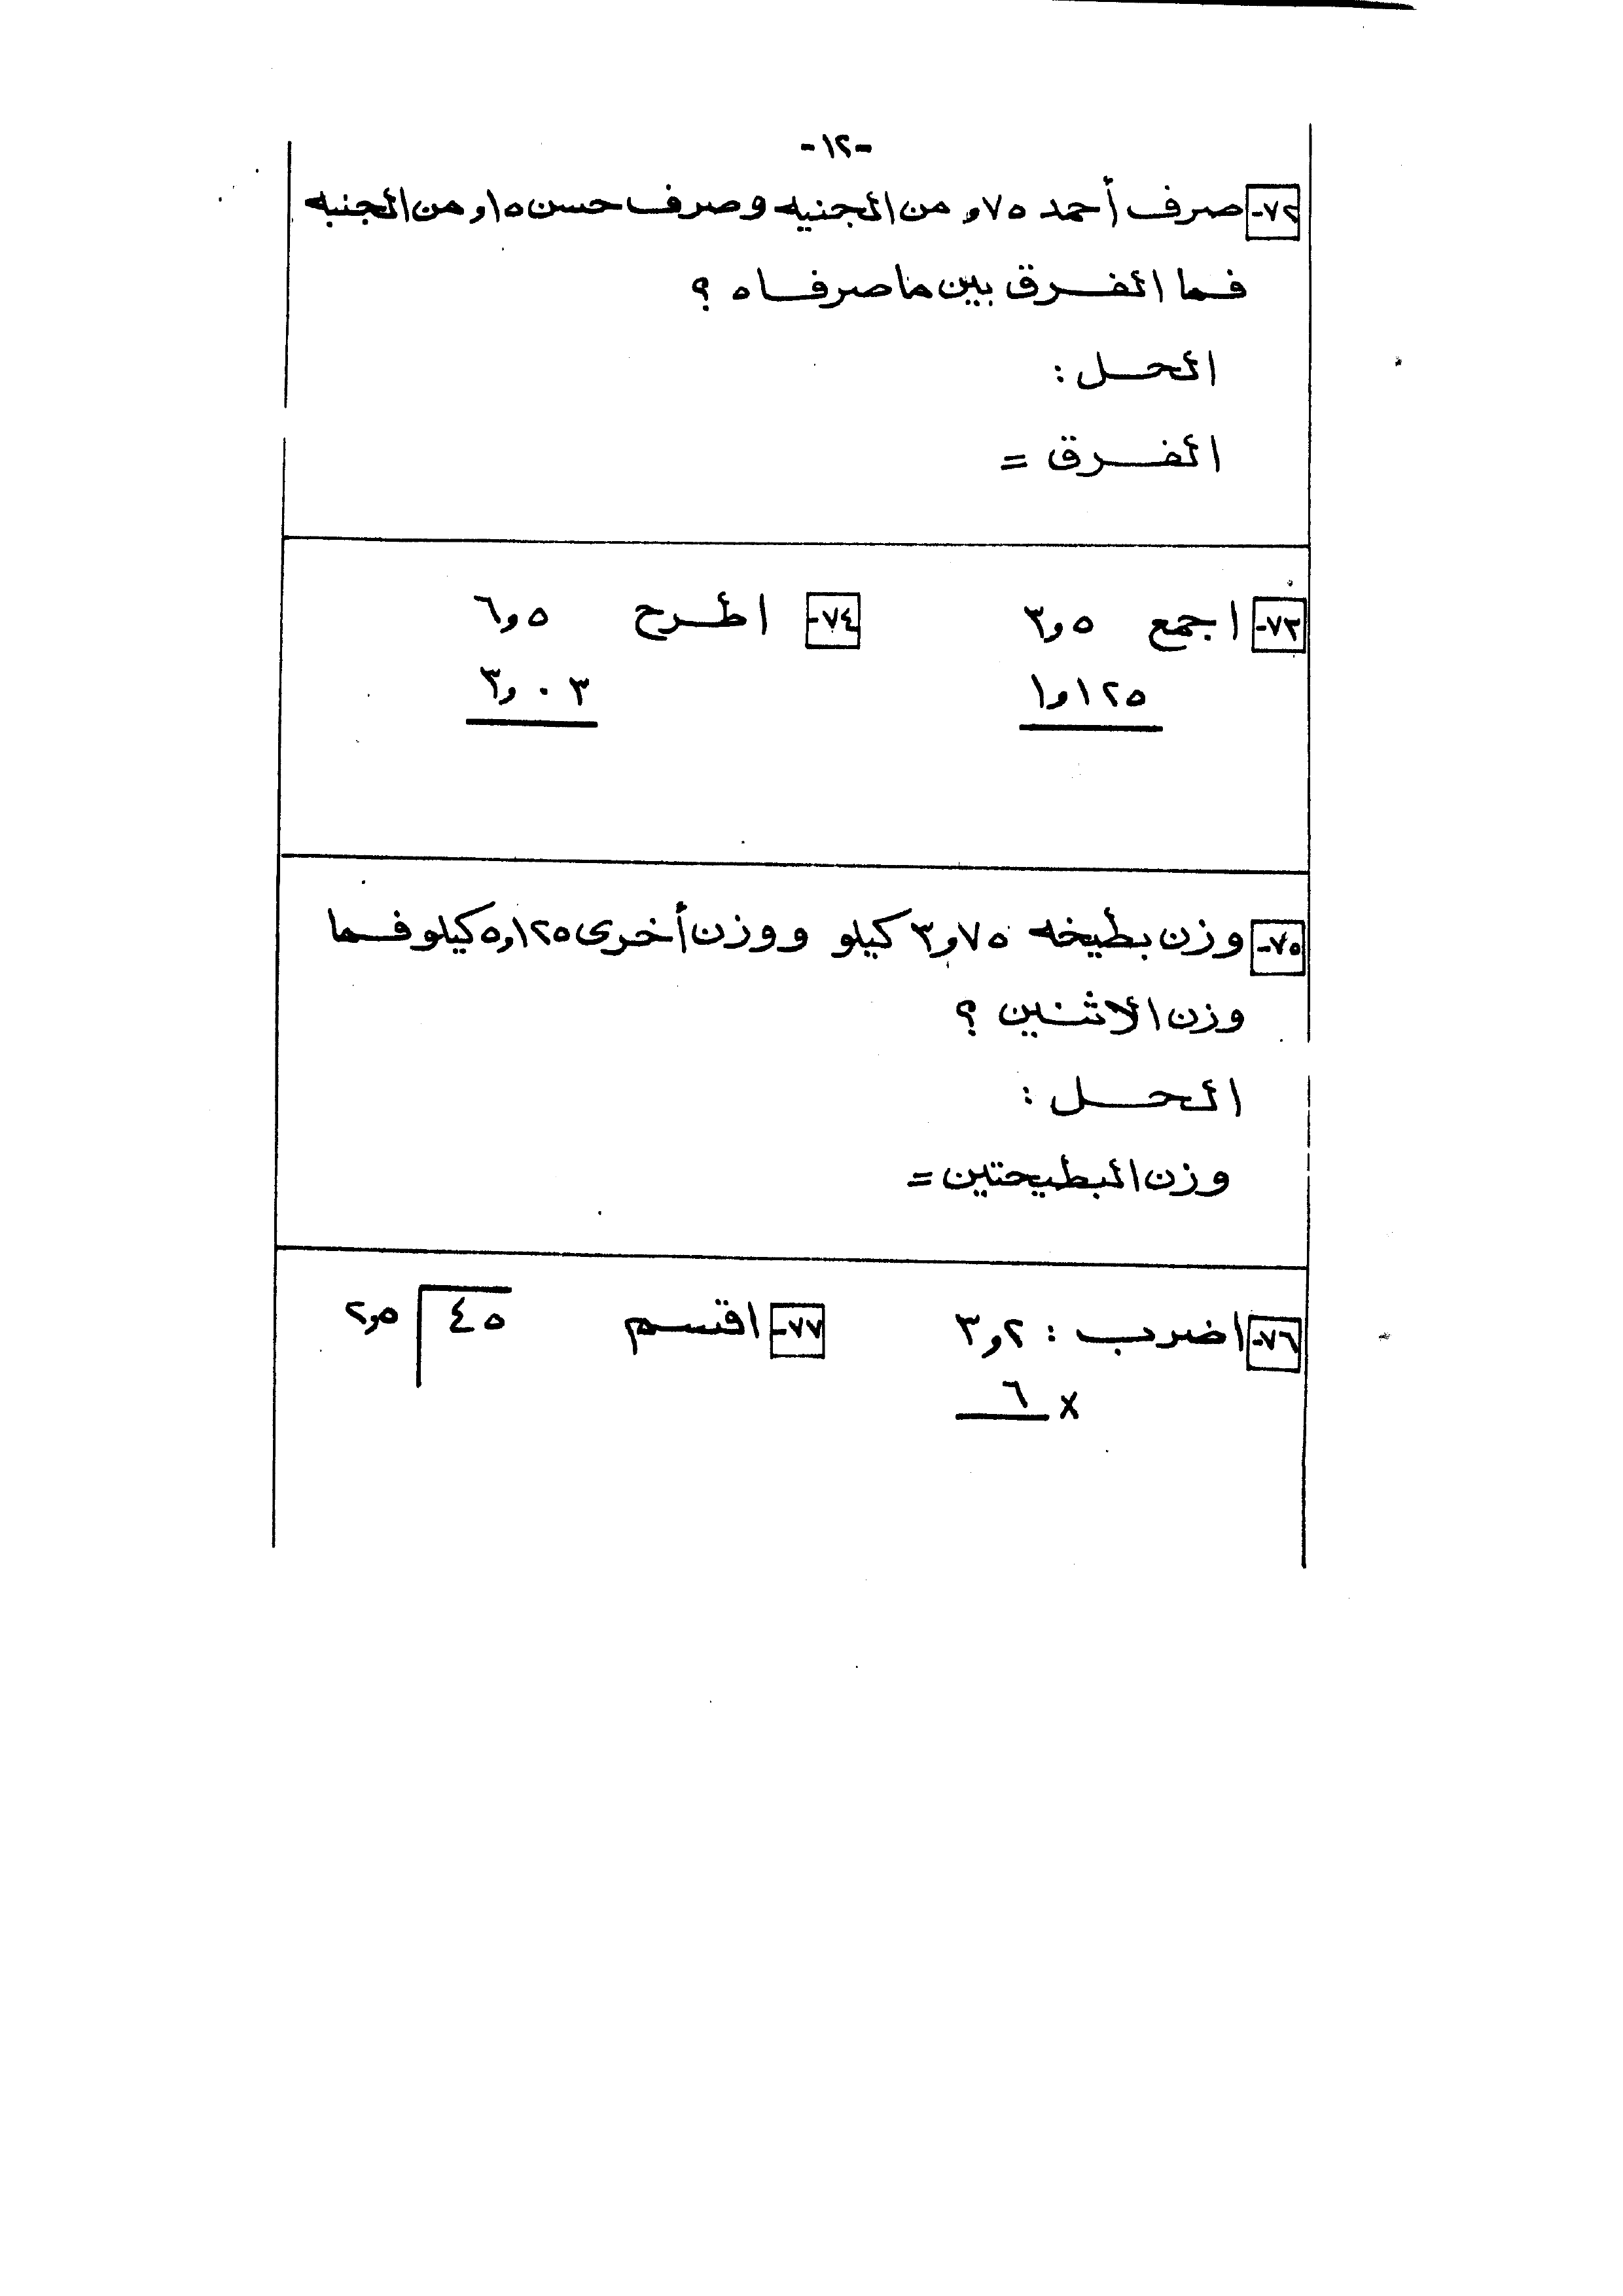 -١٢-
٧٢- صرف أحمد ٧٥و من الجنيه وصرف حسن ١٥و من الجنيه
فما الفرق بين ما صرفاه ؟
الحل :
الفرق =
٧٣- اجمع ٣و٥
١و١٢٥
٧٤- اطرح ٦و٥
٣و٠٣
٧٥- وزن بطيخه ٣و٧٥ كيلو ووزن أخرى ٥و١٢٥ كيلو فما
وزن الاثنين ؟
الحل :
وزن البطيختين =
٧٦- اضرب : ٣و٢
٦ x
٧٧- اقسم ٤٥ ٢و٥